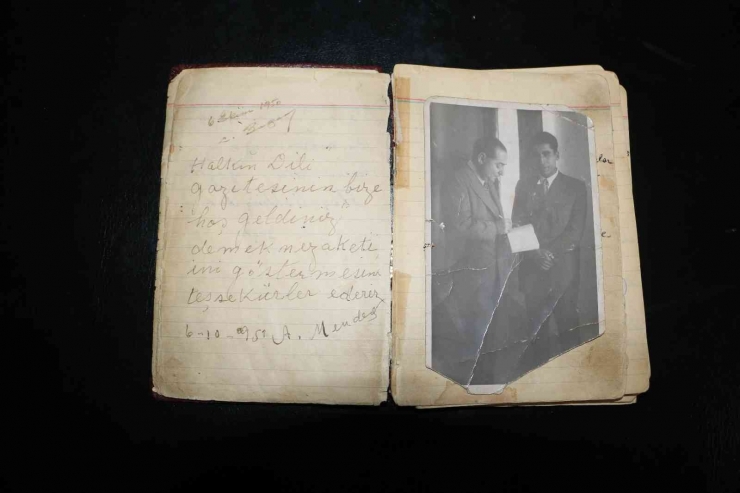 6 Ekim 1950
Halkın Dili
gazetesinin bize
"hoş geldiniz"
demek nezaketi
ini göstermesine
teşekürler ederiz
6-10-950 A. Menderes